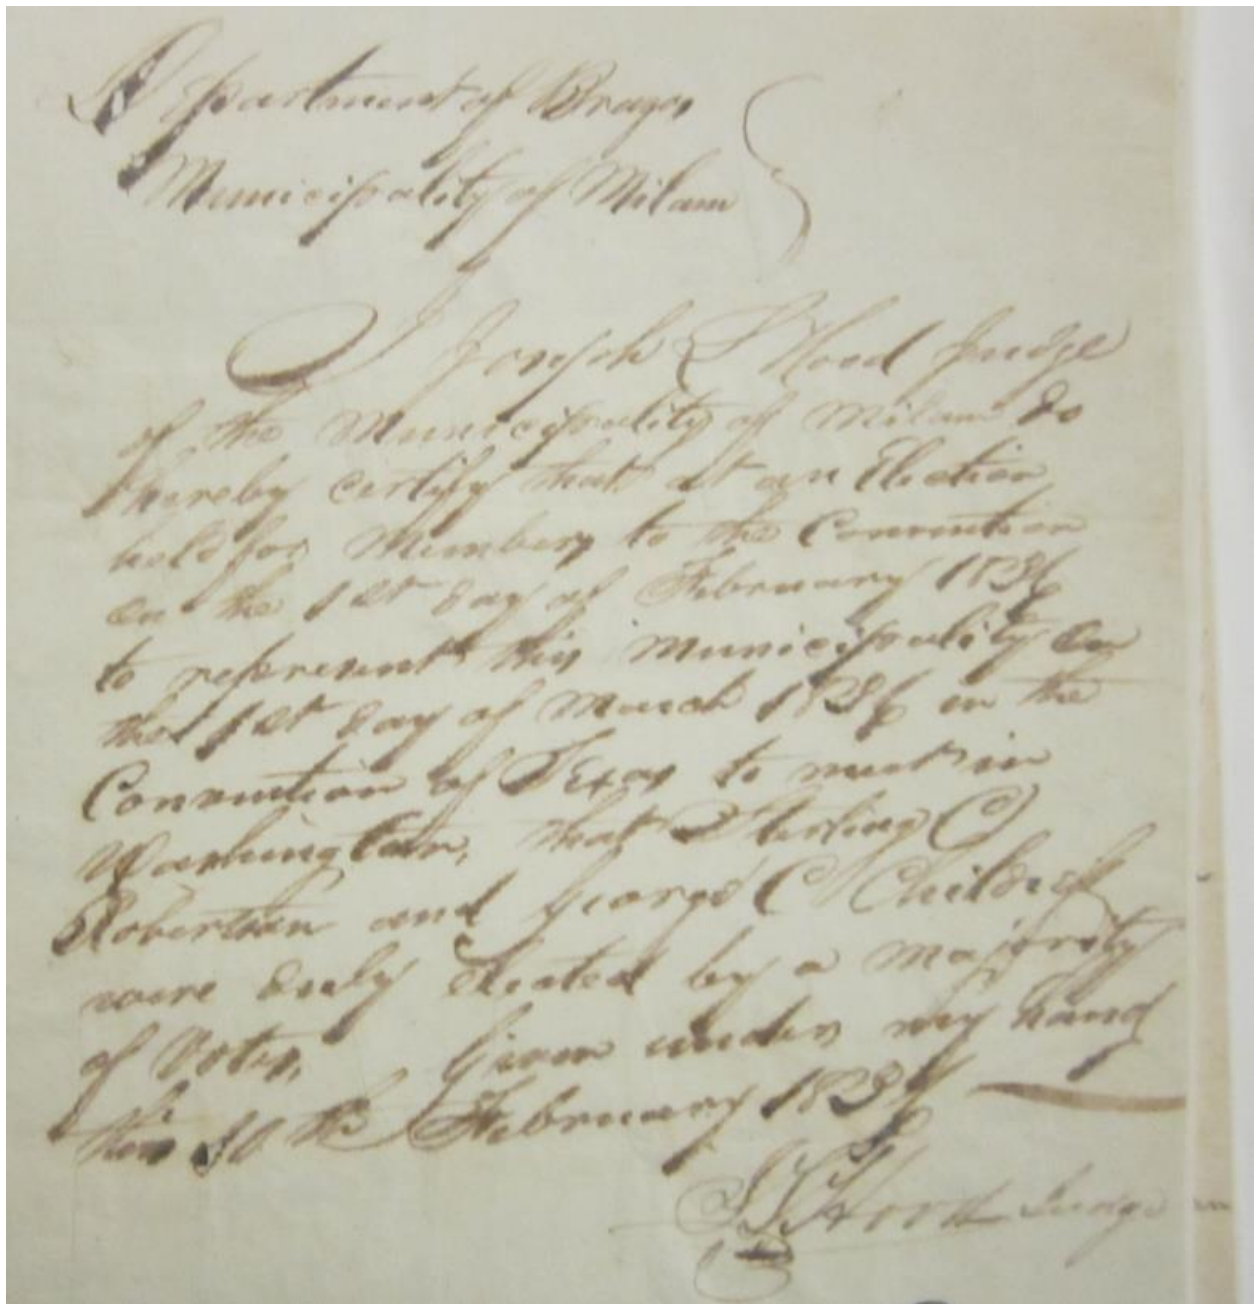 Department of Brazos
Municipality of Milam
I Joseph L Hood Judge
of the Municipality of Milam do
hereby certify that at an Election
held for Members to the Convention
on the 1st day of February 1836
to represent this Municipality on
the 1st day of March 1836 in the
Convention of Texas to meet in
Washington, that Sterling C
Robertson and George C Childress
were duly elected by a majority
of votes, Given under my hand
this 10th February 1836
J L Hood Judge